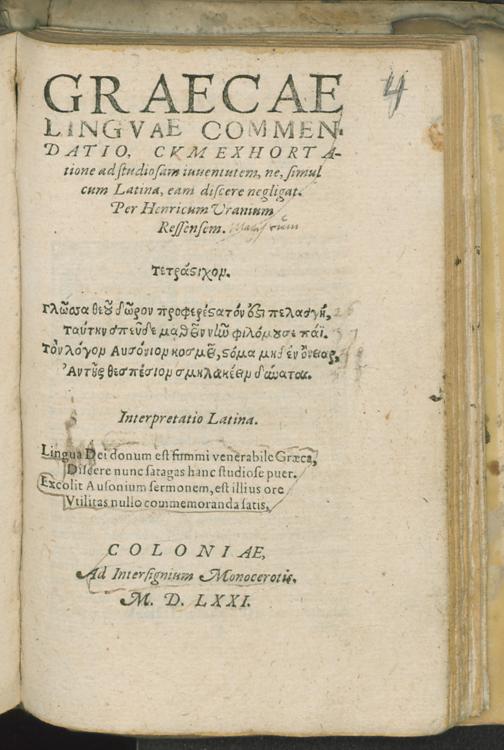 4
GRAECAE
LINGVAE COMMEN-
DATIO, CVM EXHORTA-
tione ad studiosam iuuentutem, ne, simul
cum Latina, eam discere negligat.
Per Henricum Vranium
Ressensem.
Τετράστιχον.
Γλῶσσα θεοῦ δῶρον προφερέστατόν ἐστι πελασγὴ,
Ταύτην σπεῦδε μαθεῖν νῦν φιλόμουσε πάϊ.
Τὸν λόγον Αὐσόνιον κοσμεῖ, στόμα μηδὲν
θεσπέσιον
Interpretatio Latina.
Lingua Dei donum est summi venerabile Græca,
Discere nunc satagas hanc studiose puer.
Excolit Ausonium sermonem, est illius ore
Vtilitas nullo commemoranda satis.
COLONIAE,
Ad Intersignium Monocerotis.
M. D. LXXI.